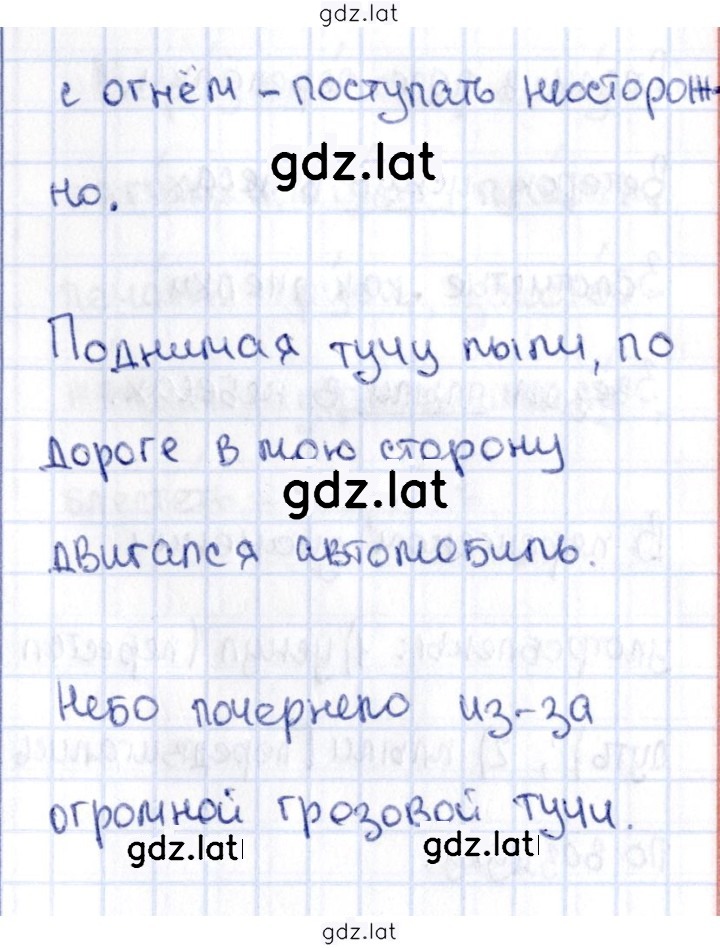 gdz.lat
с огнём – поступать неосторож-
gdz.lat
но.
Поднимая тучу пыли, по
дороге в мою сторону
gdz.lat
двигался автомобиль.
Небо почернело из-за
огромной грозовой тучи.
gdz.lat gdz.lat
gdz.lat